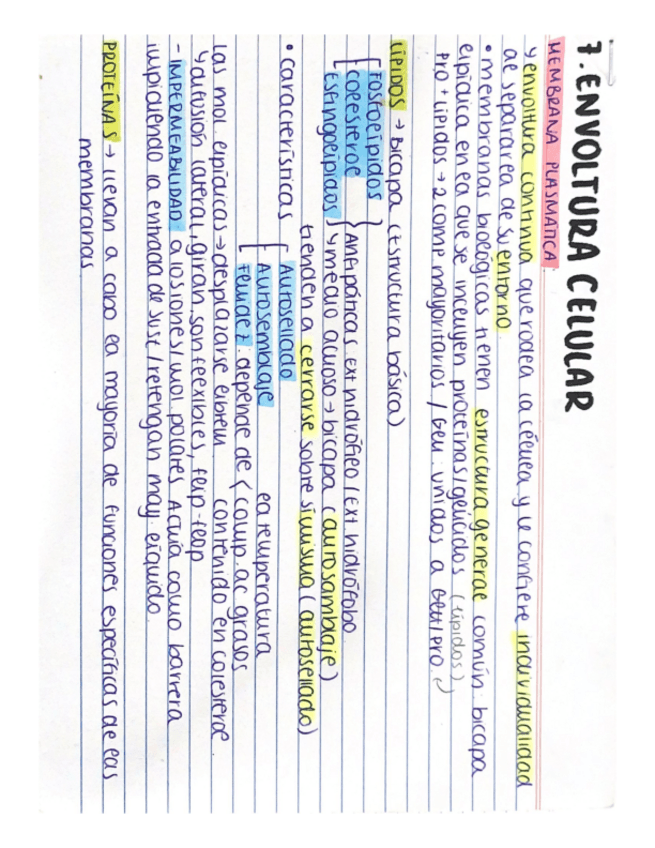 7. ENVOLTURA CELULAR
MEMBRANA PLASMÁTICA
y envoltura continua que rodea la célula y le confiere individualidad
al separarla de su entorno
• membranas biológicas tienen estructura general común: bicapa
lipídica en la que se incluyen proteínas/glúcidos (lípidos)
pro + lípidos → 2 comp mayoritarios / glu. unidos a
LÍPIDOS → bicapa (estructura básica)
[ FOSFOLÍPIDOS }
COLESTEROL } Anfipáticas ext hidrófilo / ext hidrófobo
ESFINGOLÍPIDOS y medio acuoso → bicapa (autosamblaje)
tienden a cerrarse sobre si misma (autosellado)
• Características [ AUTOSELLADO
AUTOSEMBLAJE la temperatura
FLUIDEZ: depende de { comp. ac grasos
las mol. lipídicas → desplazarse librem. contenido en colesterol
y difusión lateral, giran, son flexibles, flip-flop
- IMPERMEABILIDAD: a iones/mol. polares Actúa como barrera
impidiendo la entrada de sust/retengan may. líquido.
PROTEÍNAS → llevan a cabo la mayoría de funciones específicas de las
membranas.